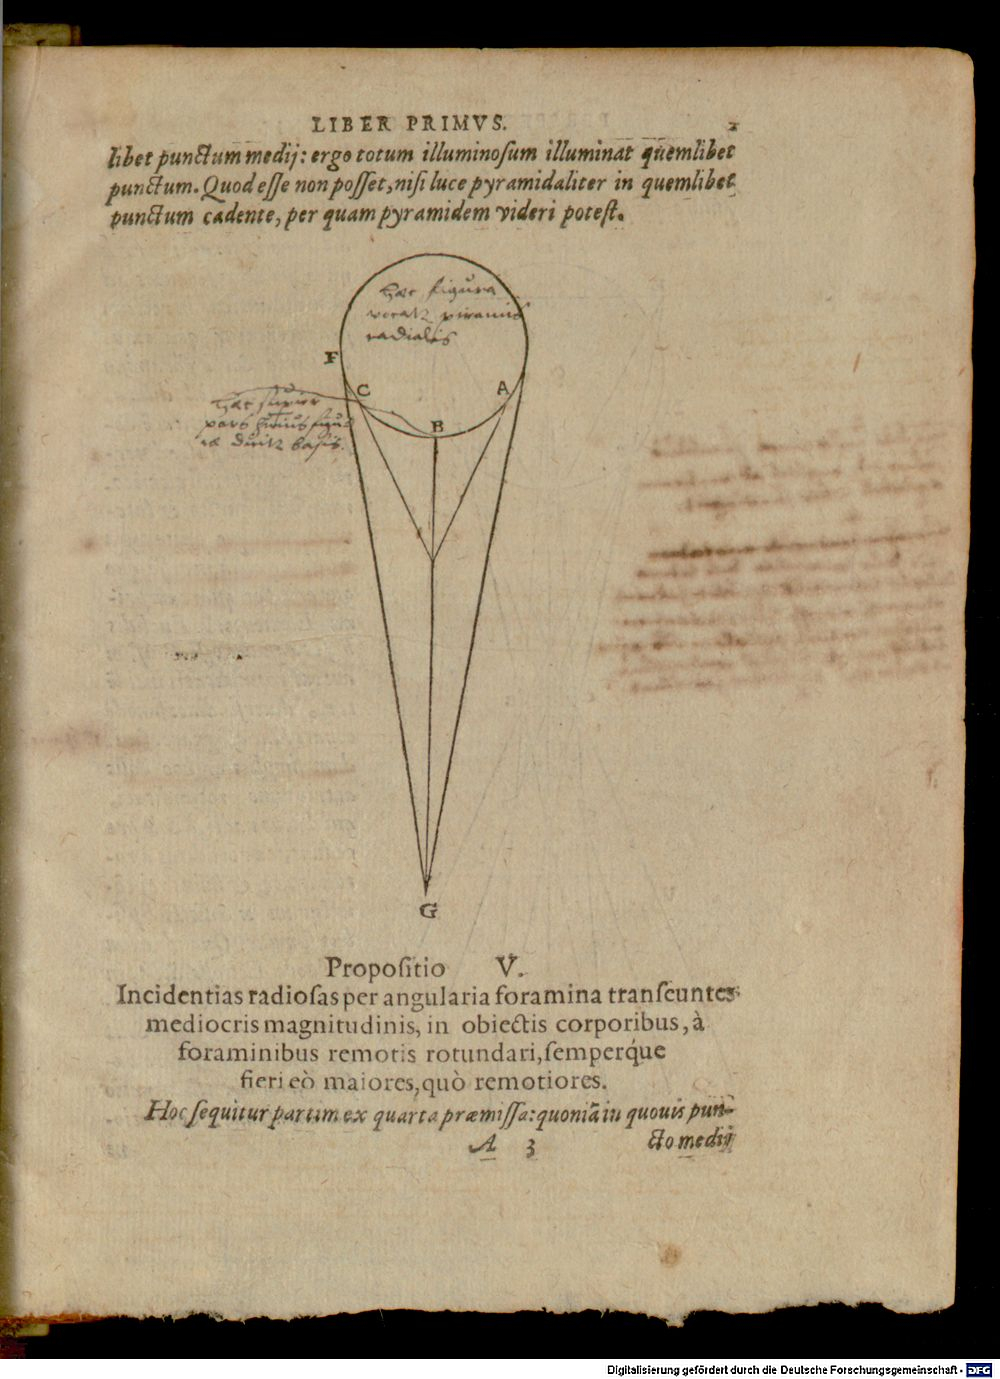 LIBER PRIMVS.
libet punctum medij: ergo totum illuminoſum illuminat quemlibet
punctum. Quod eſſe non poſſet, niſi luce pyramidaliter in quemlibet
punctum cadente, per quam pyramidem videri poteſt.
Hæc figura
vocatr piramis
radialis
F
C
A
B
Hæc superr
pars huius figu
ræ dicitr basis.
G
Propoſitio V.
Incidentias radioſas per angularia foramina tranſeuntes
mediocris magnitudinis, in obiectis corporibus, à
foraminibus remotis rotundari, ſemperq́ue
fieri eò maiores, quò remotiores.
Hoc ſequitur partim ex quarta præmiſſa: quoniã in quouis pun-
A 3 cto medij
Digitalisierung gefördert durch die Deutsche Forschungsgemeinschaft - DFG